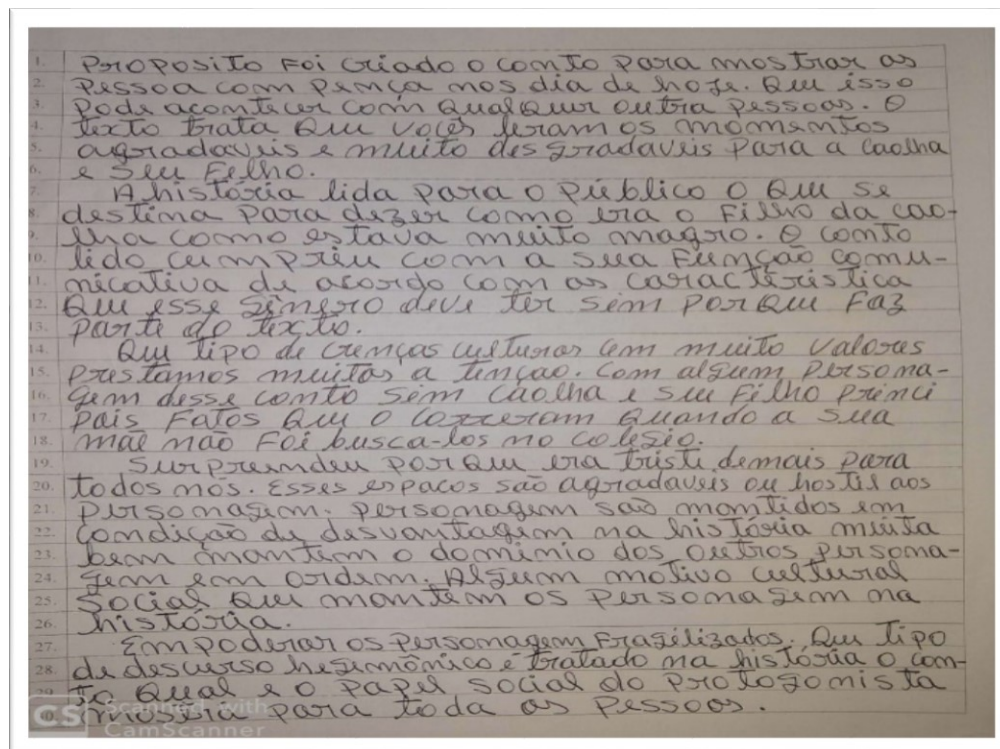 1. Proposito Foi criado o conto para mostrar as
2. Pessoa com pença nos dia de hoje. Que isso
3. Pode acontecer com qualquer outra pessoas. O
4. texto trata que vocês leram os momentos
5. agradaveis e muito desgradaveis para a caolha
6. e seu Filho.
7. A história lida para o Público o que se
8. destina para dezer como era o Filho da cao-
9. lha como estava muito magro. O conto
10. lido cumpriu com a sua Função comu-
11. nicativa de acordo com as caracteristica
12. Que esse gênero deve ter sim porque Faz
13. parte do texto.
14. Que tipo de crenças culturas tem muito valores
15. prestamos muitas a tenção. Com algum Persona-
16. gem desse conto sim caolha e seu Filho princi
17. pais Fatos que o correram quando a sua
18. mãe não Foi busca-los no colegio.
19. Surpreendeu porque era triste demais para
20. todos nós. Esses espacos são agradaveis ou hostil aos
21. personagem. personagem são mantidos em
22. condição de desvantagem na história muita
23. bem mantem o dominio dos outros persona-
24. gem em ordem. Algum motivo cultural
25. social que mantem os personagem na
26. história.
27. Empoderar os personagem Fragilizados. Que tipo
28. de descurso hegemônico e tratado na história o con-
29. to qual e o papel social do protogonista
mostra para toda as pessoas.
CS Scanned with
CamScanner